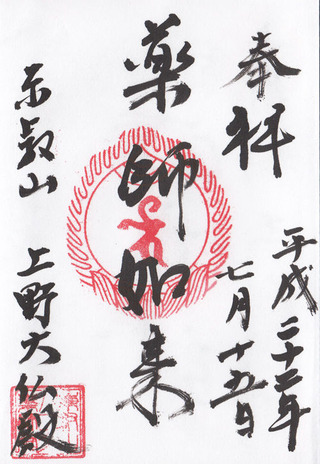 奉拝
平成二十二年
七月十五日
薬師如来
東叡山 上野大仏殿